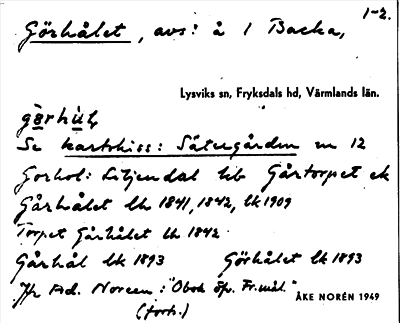 1-2.
Görhålet, avs: å 1 Backa,
Lysviks sn, Fryksdals hd, Värmlands län.
Se kartskiss: Sätergården nr 12
Gorhol: Liljendal hb Gårtorpet ek
Gårhålet lh 1841, 1842, lk 1909
Torpet Gårhålet lh 1842
Gårhål lk 1893 Görhålet lk 1893
Jfr Ad. Noreen: "Obok
ÅKE NORÉN 1949
(forts.)